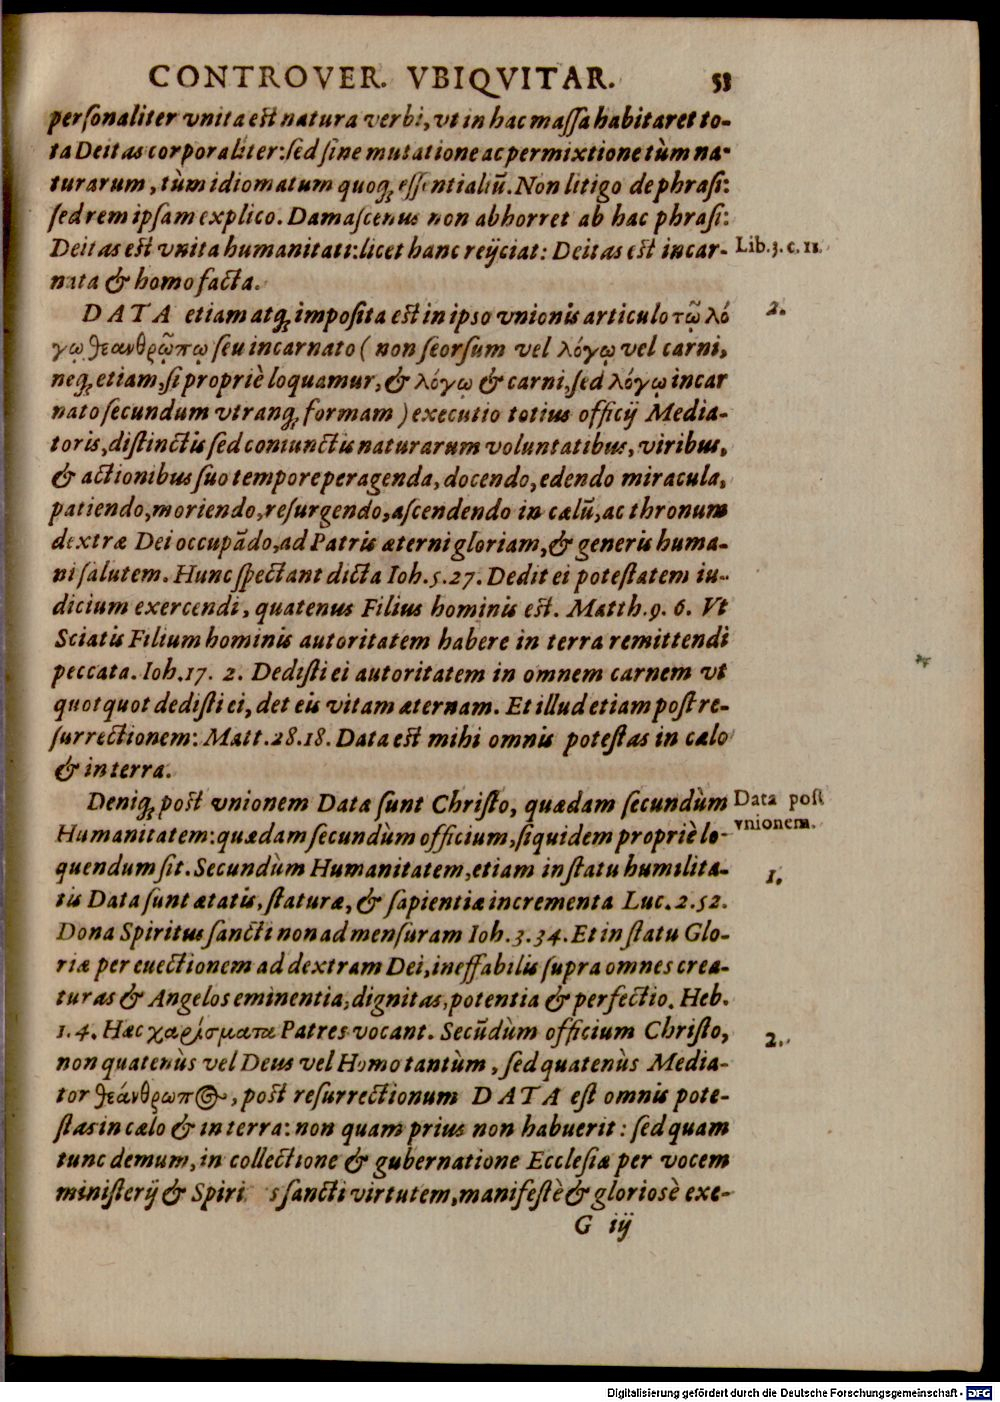 CONTROVER. VBIQVITAR. 53
perſonaliter vnita eſt natura verbi, vt in hac maſſa habitaret to-
ta Deitas corporaliter: ſed ſine mutatione ac permixtione tùm na-
turarum, tùm idiomatum quoq; eſſentialiũ. Non litigo de phraſi:
ſed rem ipſam explico. Damaſcenus non abhorret ab hac phraſi:
Deitas eſt vnita humanitati: licet hanc reijciat: Deitas eſt incar- Lib. 3. c. 11.
nata & homo facta.
DATA etiam atq; impoſita eſt in ipso vnionis articulo τῷ λό 2.
γῳ θεανθρώπῳ ſeu incarnato ( non ſeorſum vel λόγῳ vel carni,
neq; etiam, ſi propriè loquamur, & λόγῳ & carni, ſed λόγῳ incar
nato ſecundum vtranq; formam ) executio totius officij Media-
toris, diſtinctis ſed coniunctis naturarum voluntatibus, viribus,
& actionibus ſuo tempore peragenda, docendo, edendo miracula,
patiendo, moriendo, reſurgendo, aſcendendo in cælũ, ac thronum
dextræ Dei occupãdo, ad Patris æterni gloriam, & generis huma-
ni ſalutem. Hunc ſpectant dicta Ioh. 5. 27. Dedit ei poteſtatem iu-
dicium exercendi, quatenus Filius hominis eſt. Matth. 9. 6. Vt
Sciatis Filium hominis autoritatem habere in terra remittendi
peccata. Ioh. 17. 2. Dediſti ei autoritatem in omnem carnem vt
quotquot dediſti ei, det eis vitam æternam. Et illud etiam poſt re-
ſurrectionem: Matt. 28. 18. Data eſt mihi omnis poteſtas in cælo
& in terra.
Deniq; poſt vnionem Data ſunt Chriſto, quædam ſecundùm Data poſt
Humanitatem: quædam ſecundùm officium, ſiquidem propriè lo- vnionem.
quendum ſit. Secundùm Humanitatem, etiam in ſtatu humilita- 1.
tis Data ſunt ætatis, ſtaturæ, & ſapientiæ incrementa Luc. 2. 52.
Dona Spiritus ſancti non ad menſuram Ioh. 3. 34. Et in ſtatu Glo-
riæ per euectionem ad dextram Dei, ineffabilis ſupra omnes crea-
turas & Angelos eminentia, dignitas, potentia & perfectio. Heb.
1. 4. Hæc χαρίσματα Patres vocant. Secũdùm officium Chriſto, 2.
non quatenùs vel Deus vel Homo tantùm, ſed quatenùs Media-
tor θεάνθρωπος, poſt reſurrectionum DATA eſt omnis pote-
ſtas in cælo & in terra: non quam prius non habuerit: ſed quam
tunc demum, in collectione & gubernatione Eccleſiæ per vocem
miniſterij & Spiri s ſancti virtutem, manifeſtè & glorioſè exe-
G iij
Digitalisierung gefördert durch die Deutsche Forschungsgemeinschaft - DFG